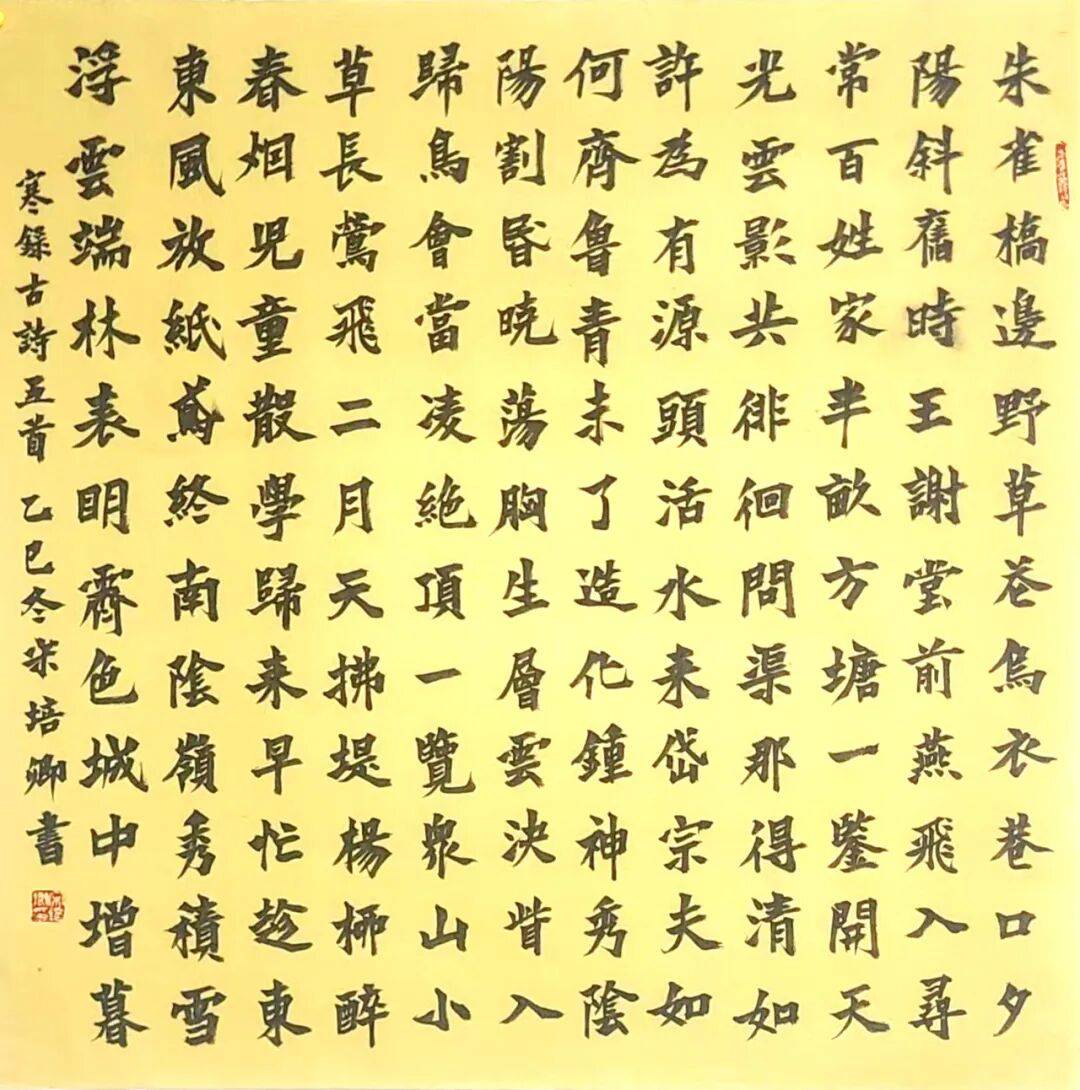 朱雀橋邊野草花烏衣巷口夕
陽斜舊時王謝堂前燕飛入尋
常百姓家半畝方塘一鑒開天
光雲影共徘徊問渠那得清如
許為有源頭活水来岱宗夫如
何齊魯青未了造化鍾神秀陰
陽割昏曉蕩胸生層雲決眥入
歸鳥會當凌絶頂一覽衆山小
草長鶯飛二月天拂堤楊柳醉
春烟児童散學歸来早忙趁東
東風放紙鳶終南陰嶺秀積雪
浮雲端林表明霽色城中增暮
寒錄古詩五首 乙巳冬培卿書